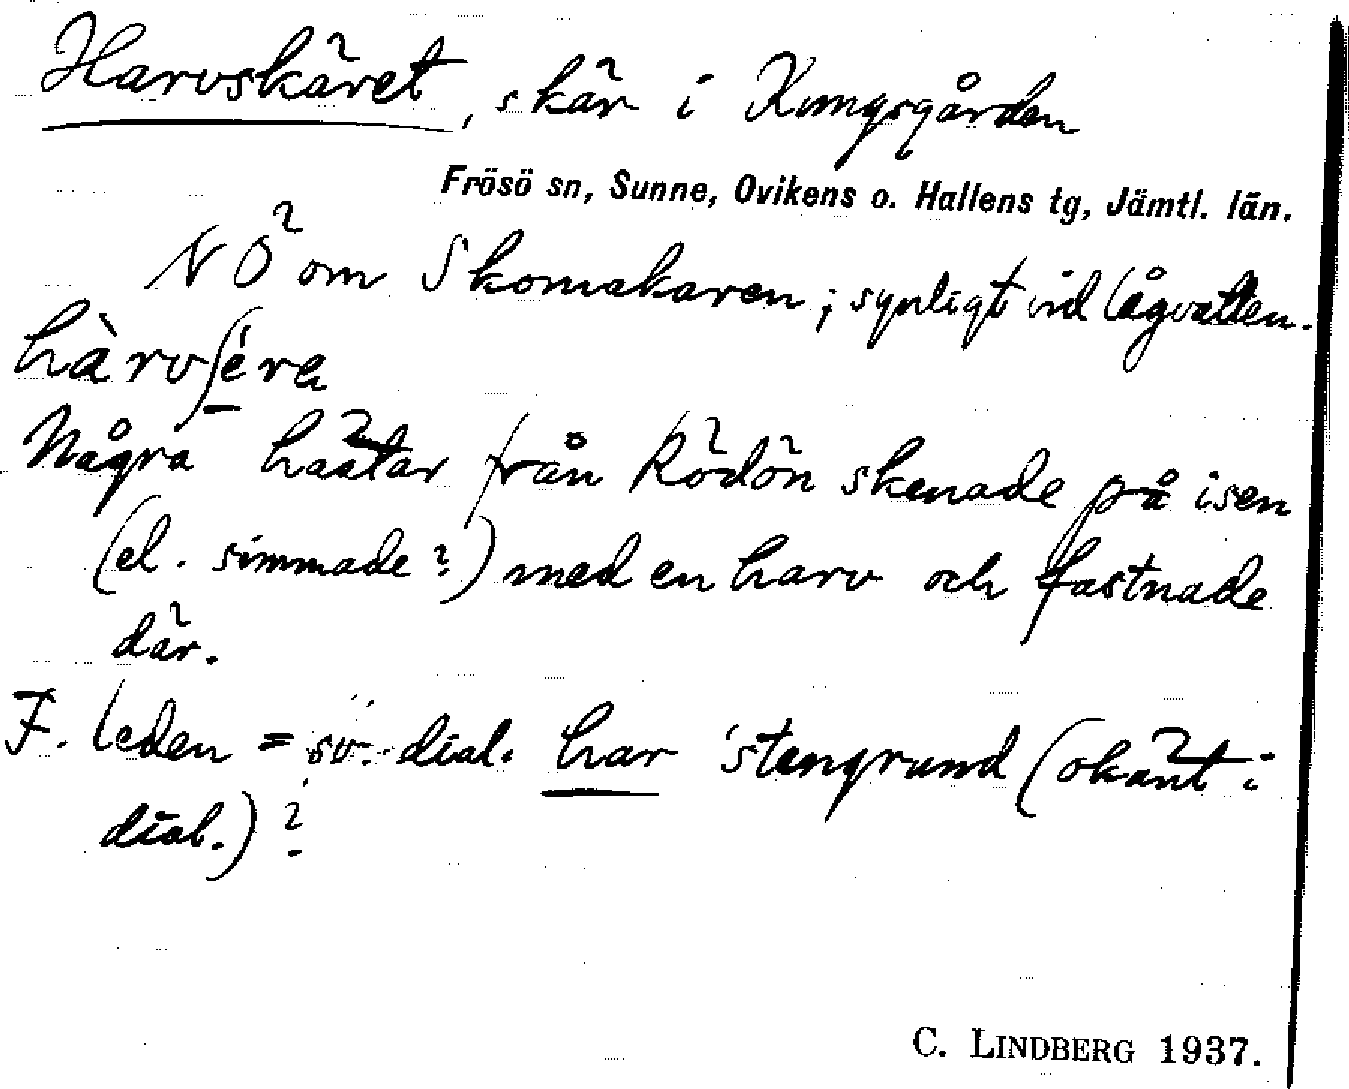 Harvskäret, skär i Kungsgården
Frösö sn, Sunne, Ovikens o. Hallens tg, Jämtl. län.
NÖ om Skomakaren; synligt vid lågvatten.
hàrvʃèra
Några hästar från Rödön skenade på isen
(el. simmade?) med en harv och fastnade
där.
F. leden = sv. dial. har 'stengrund (okänt i
dial.)?
C. LINDBERG 1937.